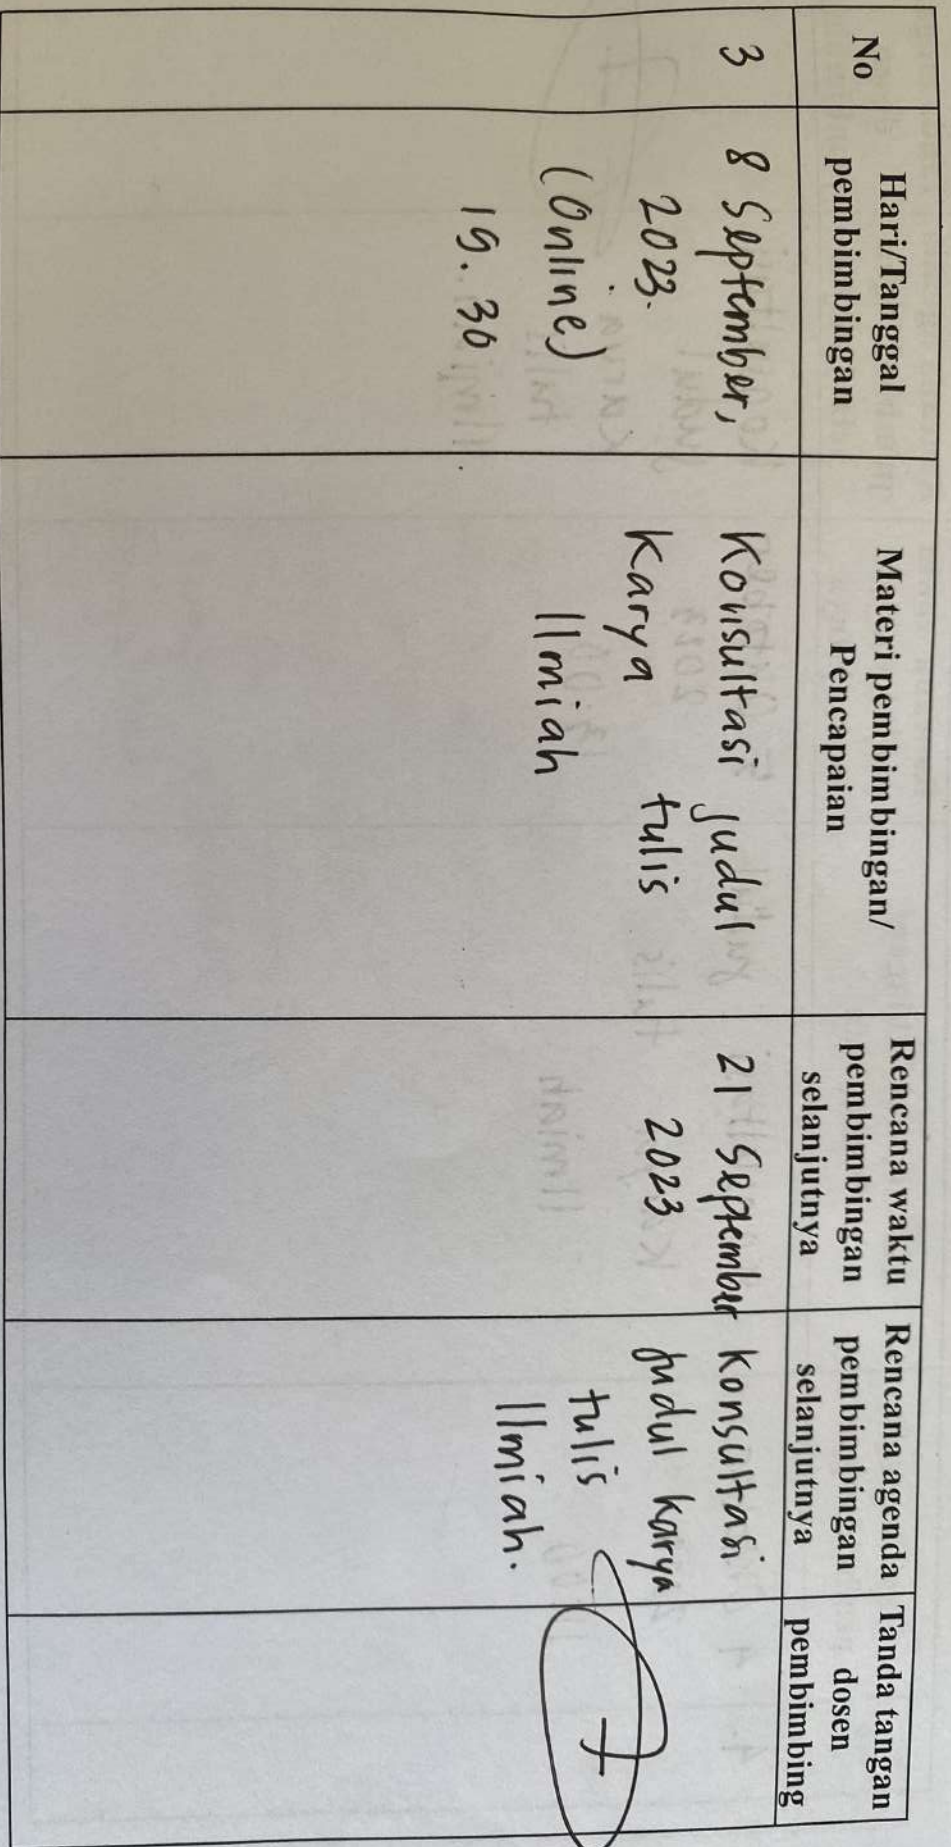 No
Hari/Tanggal
pembimbingan
Materi pembimbingan/
Pencapaian
Rencana waktu
pembimbingan
selanjutnya
Rencana agenda
pembimbingan
selanjutnya
Tanda tangan
dosen
pembimbing
3
8 September,
2023.
(Online)
19.30
Konsultasi judul
Karya tulis
Ilmiah
21 September
2023
Konsultasi
Judul Karya
tulis
Ilmiah.